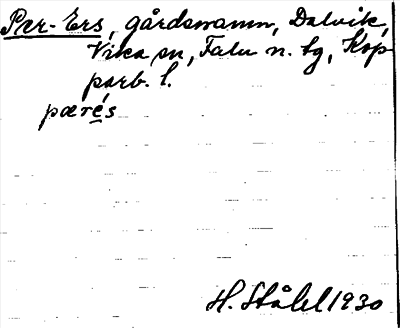 Per-Ers, gårdsnamn, Dalvik,
Vika sn, Falu n. bg, Kop-
parb. l.
pærés
H. Ståhl 1930